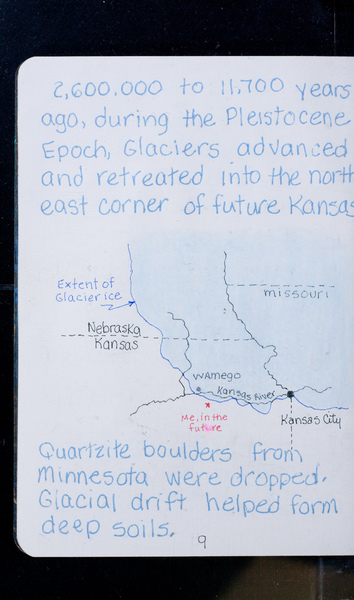 2,600,000 to 11,700 years
ago, during the Pleistocene
Epoch, Glaciers advanced
and retreated into the north
east corner of future Kansas
Extent of
Glacier ice
missouri
Nebraska
Kansas
WAmego
Kansas River
Me, in the
future
Kansas City
Quartzite boulders from
Minnesota were dropped.
Glacial drift helped form
deep soils.
9